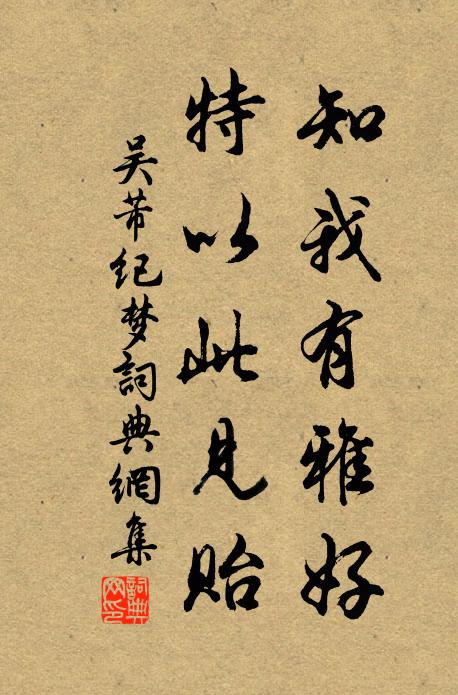 知我有雅好
特以此見貽
吴芾纪梦詞典網集
詞典网印